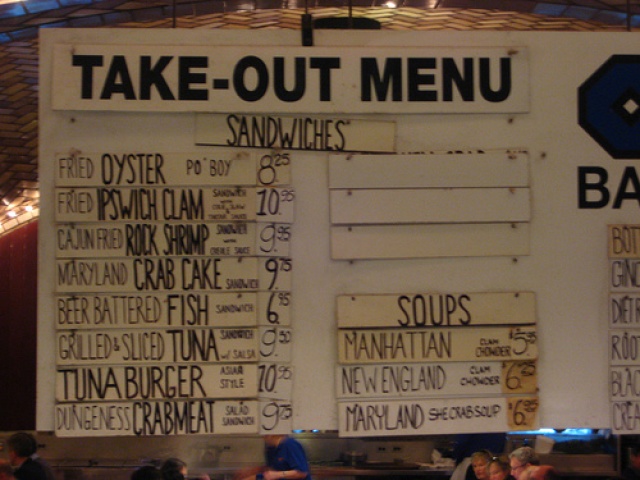 TAKE-OUT MENU
SANDWICHES
FRIED OYSTER PO' BOY 8.25
FRIED IPSWICH CLAM SANDWICH WITH COLE SLAW TARTAR SAUCE 10.95
CAJUN FRIED ROCK SHRIMP SANDWICH WITH CREOLE SAUCE 9.95
MARYLAND CRAB CAKE SANDWICH 9.75
BEER BATTERED FISH SANDWICH 6.95
GRILLED & SLICED TUNA SANDWICH W/ SALSA 9.50
TUNA BURGER ASIAN STYLE 10.95
DUNGENESS CRABMEAT SALAD SANDWICH 9.75
SOUPS
MANHATTAN CLAM CHOWDER $5.95
NEW ENGLAND CLAM CHOWDER $6.25
MARYLAND SHE CRAB SOUP $6.25
BA
BOT
GING
DIET
ROO
BLAC
CREA